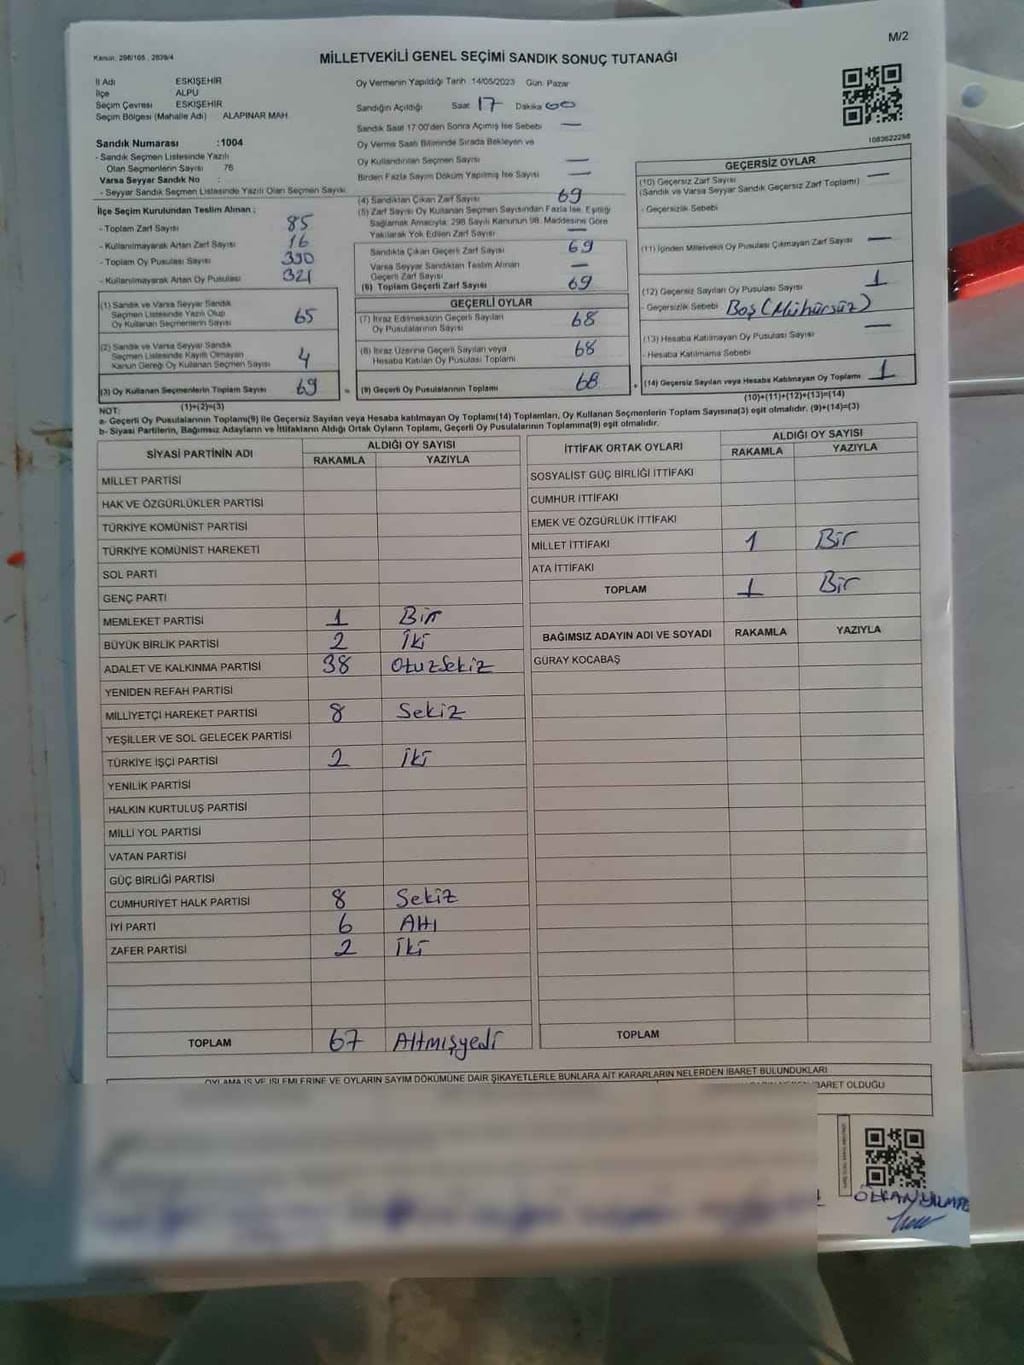 M/2
Kanun: 298/105 , 2839/4
MİLLETVEKİLİ GENEL SEÇİMİ SANDIK SONUÇ TUTANAĞI
İl Adı ESKIŞEHİR
İlçe ALPU
Seçim Çevresi ESKIŞEHİR
Seçim Bölgesi (Mahalle Adı) ALAPINAR MAH.
Oy Vermenin Yapıldığı Tarih 14/05/2023 Gün Pazar
Sandığın Açıldığı Saat 17 Dakika 00
Sandık Saat 17:00'den Sonra Açımış İse Sebebi —
Oy Verme Saati Bitiminde Sırada Bekleyen ve
Oy Kullandırılan Seçmen Sayısı —
Birden Fazla Sayım Döküm Yapılmış İse Sayısı —
1083622298
Sandık Numarası :1004
- Sandık Seçmen Listesinde Yazılı
Olan Seçmenlerin Sayısı 76
Varsa Seyyar Sandık No :
- Seyyar Sandık Seçmen Listesinde Yazılı Olan Seçmen Sayısı
İlçe Seçim Kurulundan Teslim Alınan :
- Toplam Zarf Sayısı 85
- Kullanılmayarak Artan Zarf Sayısı 16
- Toplam Oy Pusulası Sayısı 390
- Kullanılmayarak Artan Oy Pusulası 321
(1) Sandık ve Varsa Seyyar Sandık
Seçmen Listesinde Yazılı Olup
Oy Kullanan Seçmenlerin Sayısı 65
(2) Sandık ve Varsa Seyyar Sandık
Seçmen Listesinde Kayıtlı Olmayan
Kanun Gereği Oy Kullanan Seçmen Sayısı 4
(3) Oy Kullanan Seçmenlerin Toplam Sayısı 69
(1)+(2)=(3)
(4) Sandıktan Çıkan Zarf Sayısı 69
(5) Zarf Sayısı Oy Kullanan Seçmen Sayısından Fazla İse, Eşitliği
Sağlamak Amacıyla, 298 Sayılı Kanunun 98. Maddesine Göre
Yakılarak Yok Edilen Zarf Sayısı —
Sandıkta Çıkan Geçerli Zarf Sayısı 69
Varsa Seyyar Sandıktan Teslim Alınan
Geçerli Zarf Sayısı —
(6) Toplam Geçerli Zarf Sayısı 69
GEÇERLİ OYLAR
(7) İtiraz Edilmeksizin Geçerli Sayılan
Oy Pusulalarının Sayısı 68
(8) İtiraz Üzerine Geçerli Sayılan veya
Hesaba Katılan Oy Pusulası Toplamı 68
= (9) Geçerli Oy Pusulalarının Toplamı 68
GEÇERSİZ OYLAR
(10) Geçersiz Zarf Sayısı —
(Sandık ve Varsa Seyyar Sandık Geçersiz Zarf Toplamı)
- Geçersizlik Sebebi
(11) İçinden Milletvekili Oy Pusulası Çıkmayan Zarf Sayısı —
(12) Geçersiz Sayılan Oy Pusulası Sayısı 1
- Geçersizlik Sebebi Boş (Mühürsüz)
(13) Hesaba Katılmayan Oy Pusulası Sayısı —
- Hesaba Katılmama Sebebi
+ (14) Geçersiz Sayılan veya Hesaba Katılmayan Oy Toplamı 1
(10)+(11)+(12)+(13)=(14)
NOT:
a- Geçerli Oy Pusulalarının Toplamı(9) ile Geçersiz Sayılan veya Hesaba katılmayan Oy Toplamı(14) Toplamları, Oy Kullanan Seçmenlerin Toplam Sayısına(3) eşit olmalıdır. (9)+(14)=(3)
b- Siyasi Partilerin, Bağımsız Adayların ve İttifakların Aldığı Ortak Oyların Toplamı, Geçerli Oy Pusulalarının Toplamına(9) eşit olmalıdır.
SİYASİ PARTİNİN ADI ALDIĞI OY SAYISI
RAKAMLA YAZIYLA
MİLLET PARTİSİ
HAK VE ÖZGÜRLÜKLER PARTİSİ
TÜRKİYE KOMÜNİST PARTİSİ
TÜRKİYE KOMÜNİST HAREKETİ
SOL PARTİ
GENÇ PARTİ
MEMLEKET PARTİSİ 1 Bir
BÜYÜK BİRLİK PARTİSİ 2 İki
ADALET VE KALKINMA PARTİSİ 38 Otuzsekiz
YENİDEN REFAH PARTİSİ
MİLLİYETÇİ HAREKET PARTİSİ 8 Sekiz
YEŞİLLER VE SOL GELECEK PARTİSİ
TÜRKİYE İŞÇİ PARTİSİ 2 İki
YENİLİK PARTİSİ
HALKIN KURTULUŞ PARTİSİ
MİLLİ YOL PARTİSİ
VATAN PARTİSİ
GÜÇ BİRLİĞİ PARTİSİ
CUMHURİYET HALK PARTİSİ 8 Sekiz
İYİ PARTİ 6 Altı
ZAFER PARTİSİ 2 İki
TOPLAM 67 Altmışyedi
İTTİFAK ORTAK OYLARI ALDIĞI OY SAYISI
RAKAMLA YAZIYLA
SOSYALİST GÜÇ BİRLİĞİ İTTİFAKI
CUMHUR İTTİFAKI
EMEK VE ÖZGÜRLÜK İTTİFAKI
MİLLET İTTİFAKI 1 Bir
ATA İTTİFAKI
TOPLAM 1 Bir
BAĞIMSIZ ADAYIN ADI VE SOYADI RAKAMLA YAZIYLA
GÜRAY KOCABAŞ
TOPLAM
OYLAMA İŞ VE İŞLEMLERİNE VE OYLARIN SAYIM DÖKÜMÜNE DAİR ŞİKAYETLERLE BUNLARA AİT KARARLARIN NELERDEN İBARET BULUNDUKLARI
İBARET OLDUĞU